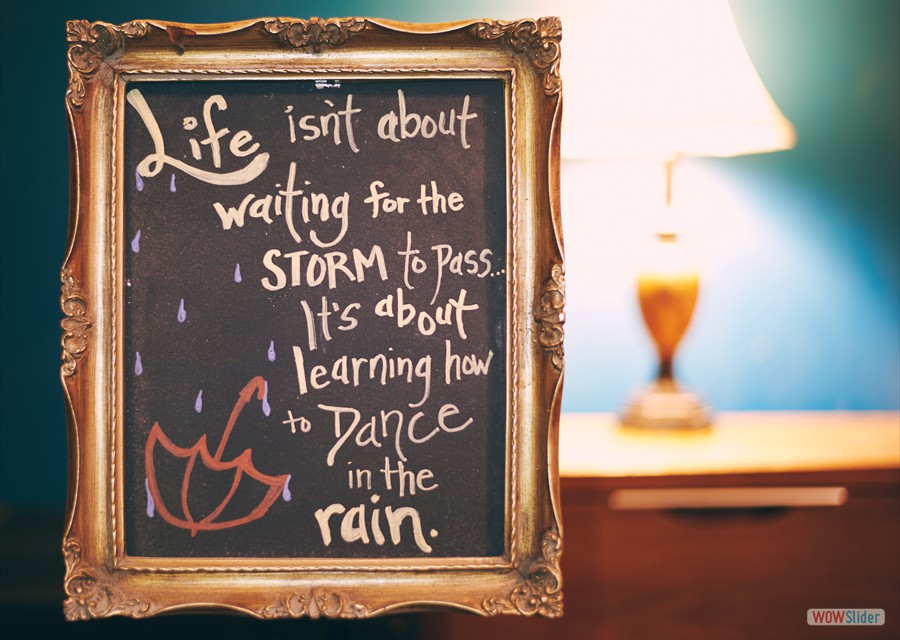 Life isn't about
waiting for the
STORM to pass...
It's about
learning how
to Dance
in the
rain.
WOWSlider